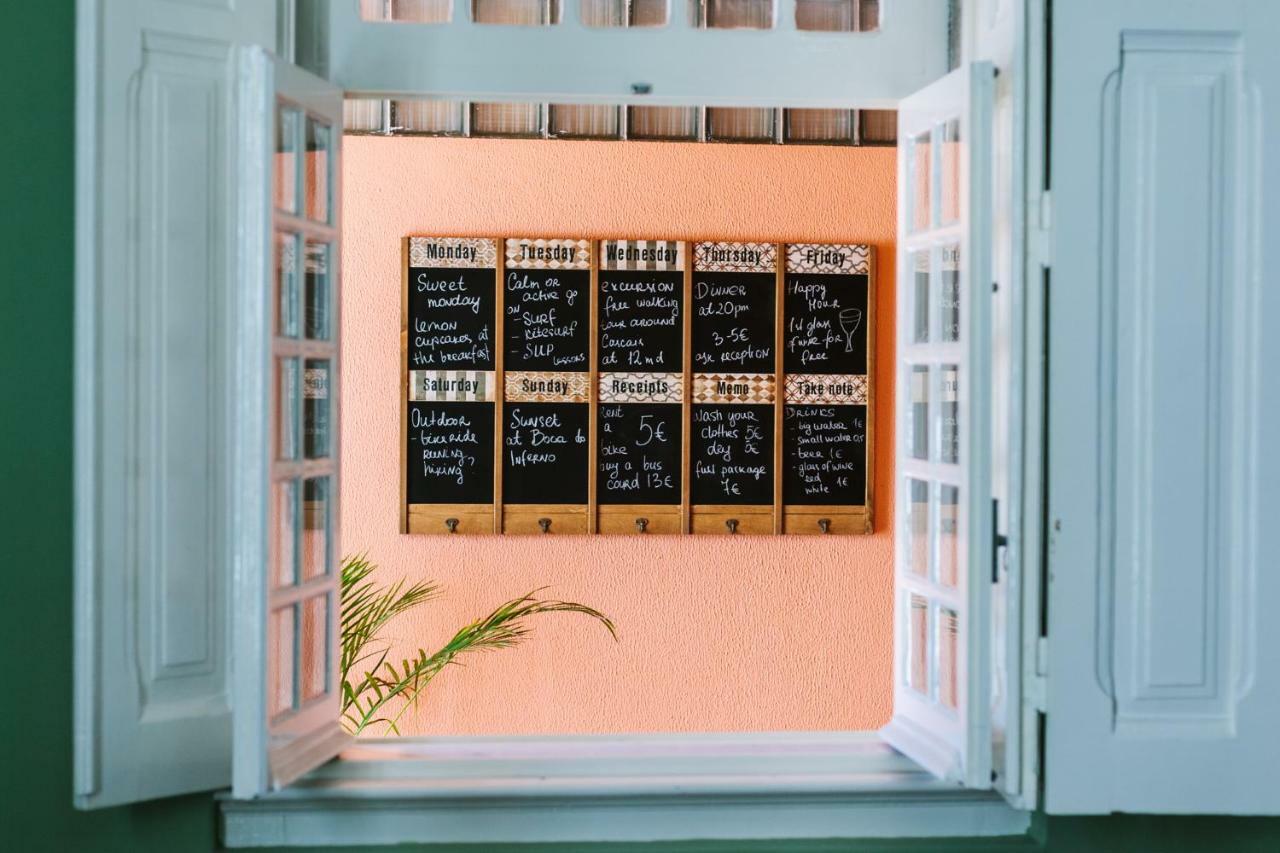 Monday
Sweet
monday
lemon
cupcakes at
the breakfast
Tuesday
Calm or
active go
on
- Surf
- Kitesurf
- SUP lessons
Wednesday
excursion
free walking
tour around
Cascais
at 12 md
Thursday
Dinner
at 20pm
3-5€
ask reception
Friday
Happy
Hour
1st glass
of wine for
free
Saturday
Outdoor
- bike ride
running
hiking
Sunday
Sunset
at Boca do
Inferno
Receipts
rent
a 5€
bike
buy a bus
card 13€
Memo
Wash your
clothes 5€
dry 5€
full package
7€
Take note
Drinks
- big water 1€
- small water 0,5
- beer 1€
- glass of wine
red 1€
white